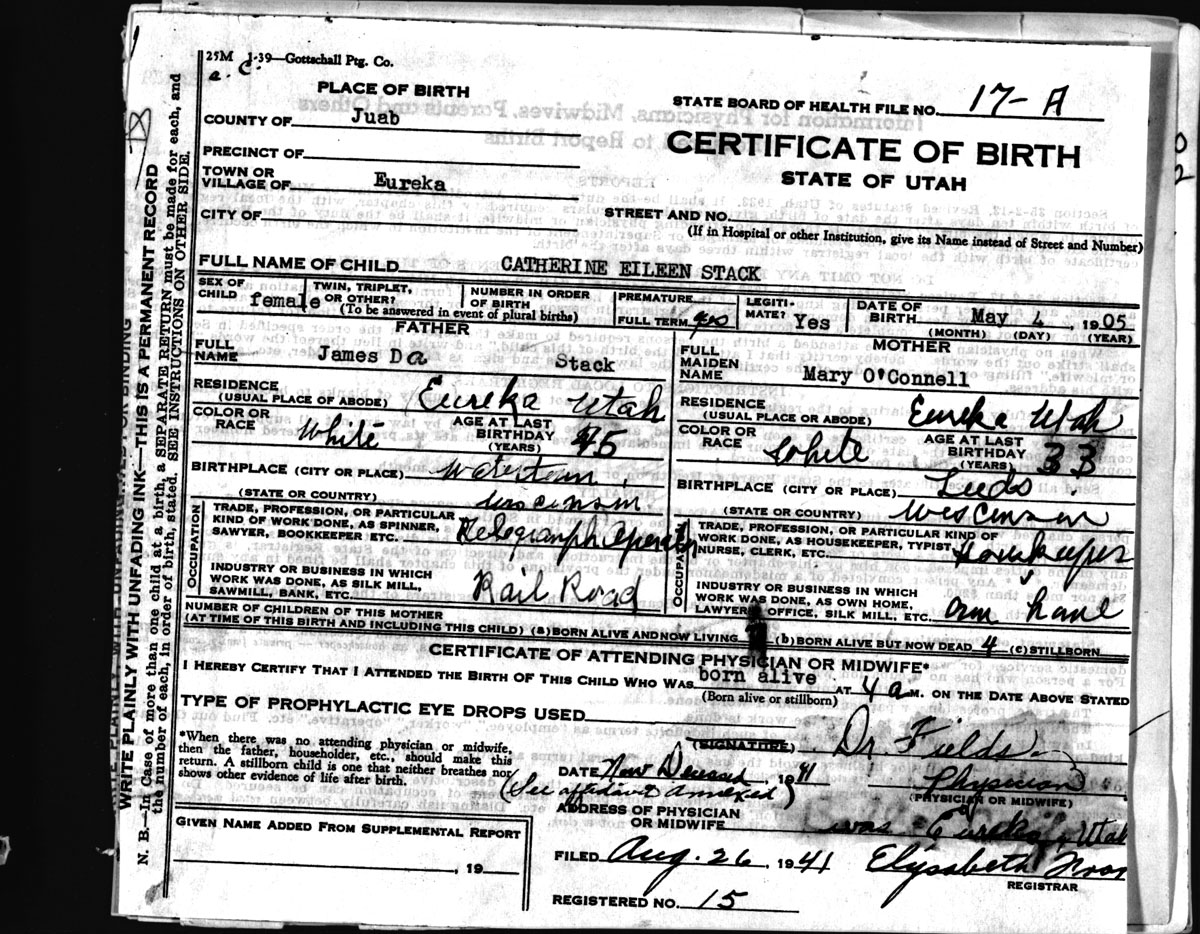 25M 1-39—Gottschall Ptg. Co.
a. C.
PLACE OF BIRTH
STATE BOARD OF HEALTH FILE NO. 17-A
COUNTY OF Juab
CERTIFICATE OF BIRTH
PRECINCT OF
STATE OF UTAH
TOWN OR
VILLAGE OF Eureka
CITY OF
STREET AND NO.
(If in Hospital or other Institution, give its Name instead of Street and Number)
FULL NAME OF CHILD CATHERINE EILEEN STACK
SEX OF
CHILD female
TWIN, TRIPLET,
OR OTHER?
(To be answered in event of plural births)
NUMBER IN ORDER
OF BIRTH
PREMATURE
FULL TERM yes
LEGITI-
MATE? Yes
DATE OF
BIRTH May 4, 1905
(MONTH) (DAY) (YEAR)
FATHER
FULL
NAME James Da Stack
RESIDENCE
(USUAL PLACE OF ABODE) Eureka Utah
COLOR OR
RACE White
AGE AT LAST
BIRTHDAY
(YEARS) 45
BIRTHPLACE (CITY OR PLACE) Watertown,
(STATE OR COUNTRY) Wisconsin
OCCUPATION
TRADE, PROFESSION, OR PARTICULAR
KIND OF WORK DONE, AS SPINNER,
SAWYER, BOOKKEEPER ETC. Telegraph Operator
INDUSTRY OR BUSINESS IN WHICH
WORK WAS DONE, AS SILK MILL,
SAWMILL, BANK, ETC. Rail Road
MOTHER
FULL
MAIDEN
NAME Mary O'Connell
RESIDENCE
(USUAL PLACE OR ABODE) Eureka Utah
COLOR OR
RACE White
AGE AT LAST
BIRTHDAY
(YEARS) 33
BIRTHPLACE (CITY OR PLACE) Leeds
(STATE OR COUNTRY) Wisconsin
OCCUPA
TRADE, PROFESSION, OR PARTICULAR KIND OF
WORK DONE, AS HOUSEKEEPER, TYPIST
NURSE, CLERK, ETC. Housekeeper
INDUSTRY OR BUSINESS IN WHICH
WORK WAS DONE, AS OWN HOME,
LAWYERS OFFICE, SILK MILL, ETC. own home
NUMBER OF CHILDREN OF THIS MOTHER
(AT TIME OF THIS BIRTH AND INCLUDING THIS CHILD) (a) BORN ALIVE AND NOW LIVING (b) BORN ALIVE BUT NOW DEAD 4 (c) STILLBORN
CERTIFICATE OF ATTENDING PHYSICIAN OR MIDWIFE*
I HEREBY CERTIFY THAT I ATTENDED THE BIRTH OF THIS CHILD WHO WAS born alive AT 4 a M. ON THE DATE ABOVE STATED
(Born alive or stillborn)
TYPE OF PROPHYLACTIC EYE DROPS USED
*When there was no attending physician or midwife,
then the father, householder, etc., should make this
return. A stillborn child is one that neither breathes nor
shows other evidence of life after birth.
(SIGNATURE) Dr Fields
DATE Now Deceased 1941
Physician
(PHYSICIAN OR MIDWIFE)
(See affidavit annexed)
ADDRESS OF PHYSICIAN
OR MIDWIFE was Eureka, Utah
GIVEN NAME ADDED FROM SUPPLEMENTAL REPORT
, 19
FILED Aug. 26, 1941 Elysabeth
REGISTRAR
REGISTERED NO. 15
WRITE PLAINLY WITH UNFADING INK—THIS IS A PERMANENT RECORD
N. B.—In Case of more than one child at a birth, a SEPARATE RETURN must be made for each, and
the number of each, in order of birth, stated. SEE INSTRUCTIONS ON OTHER SIDE.